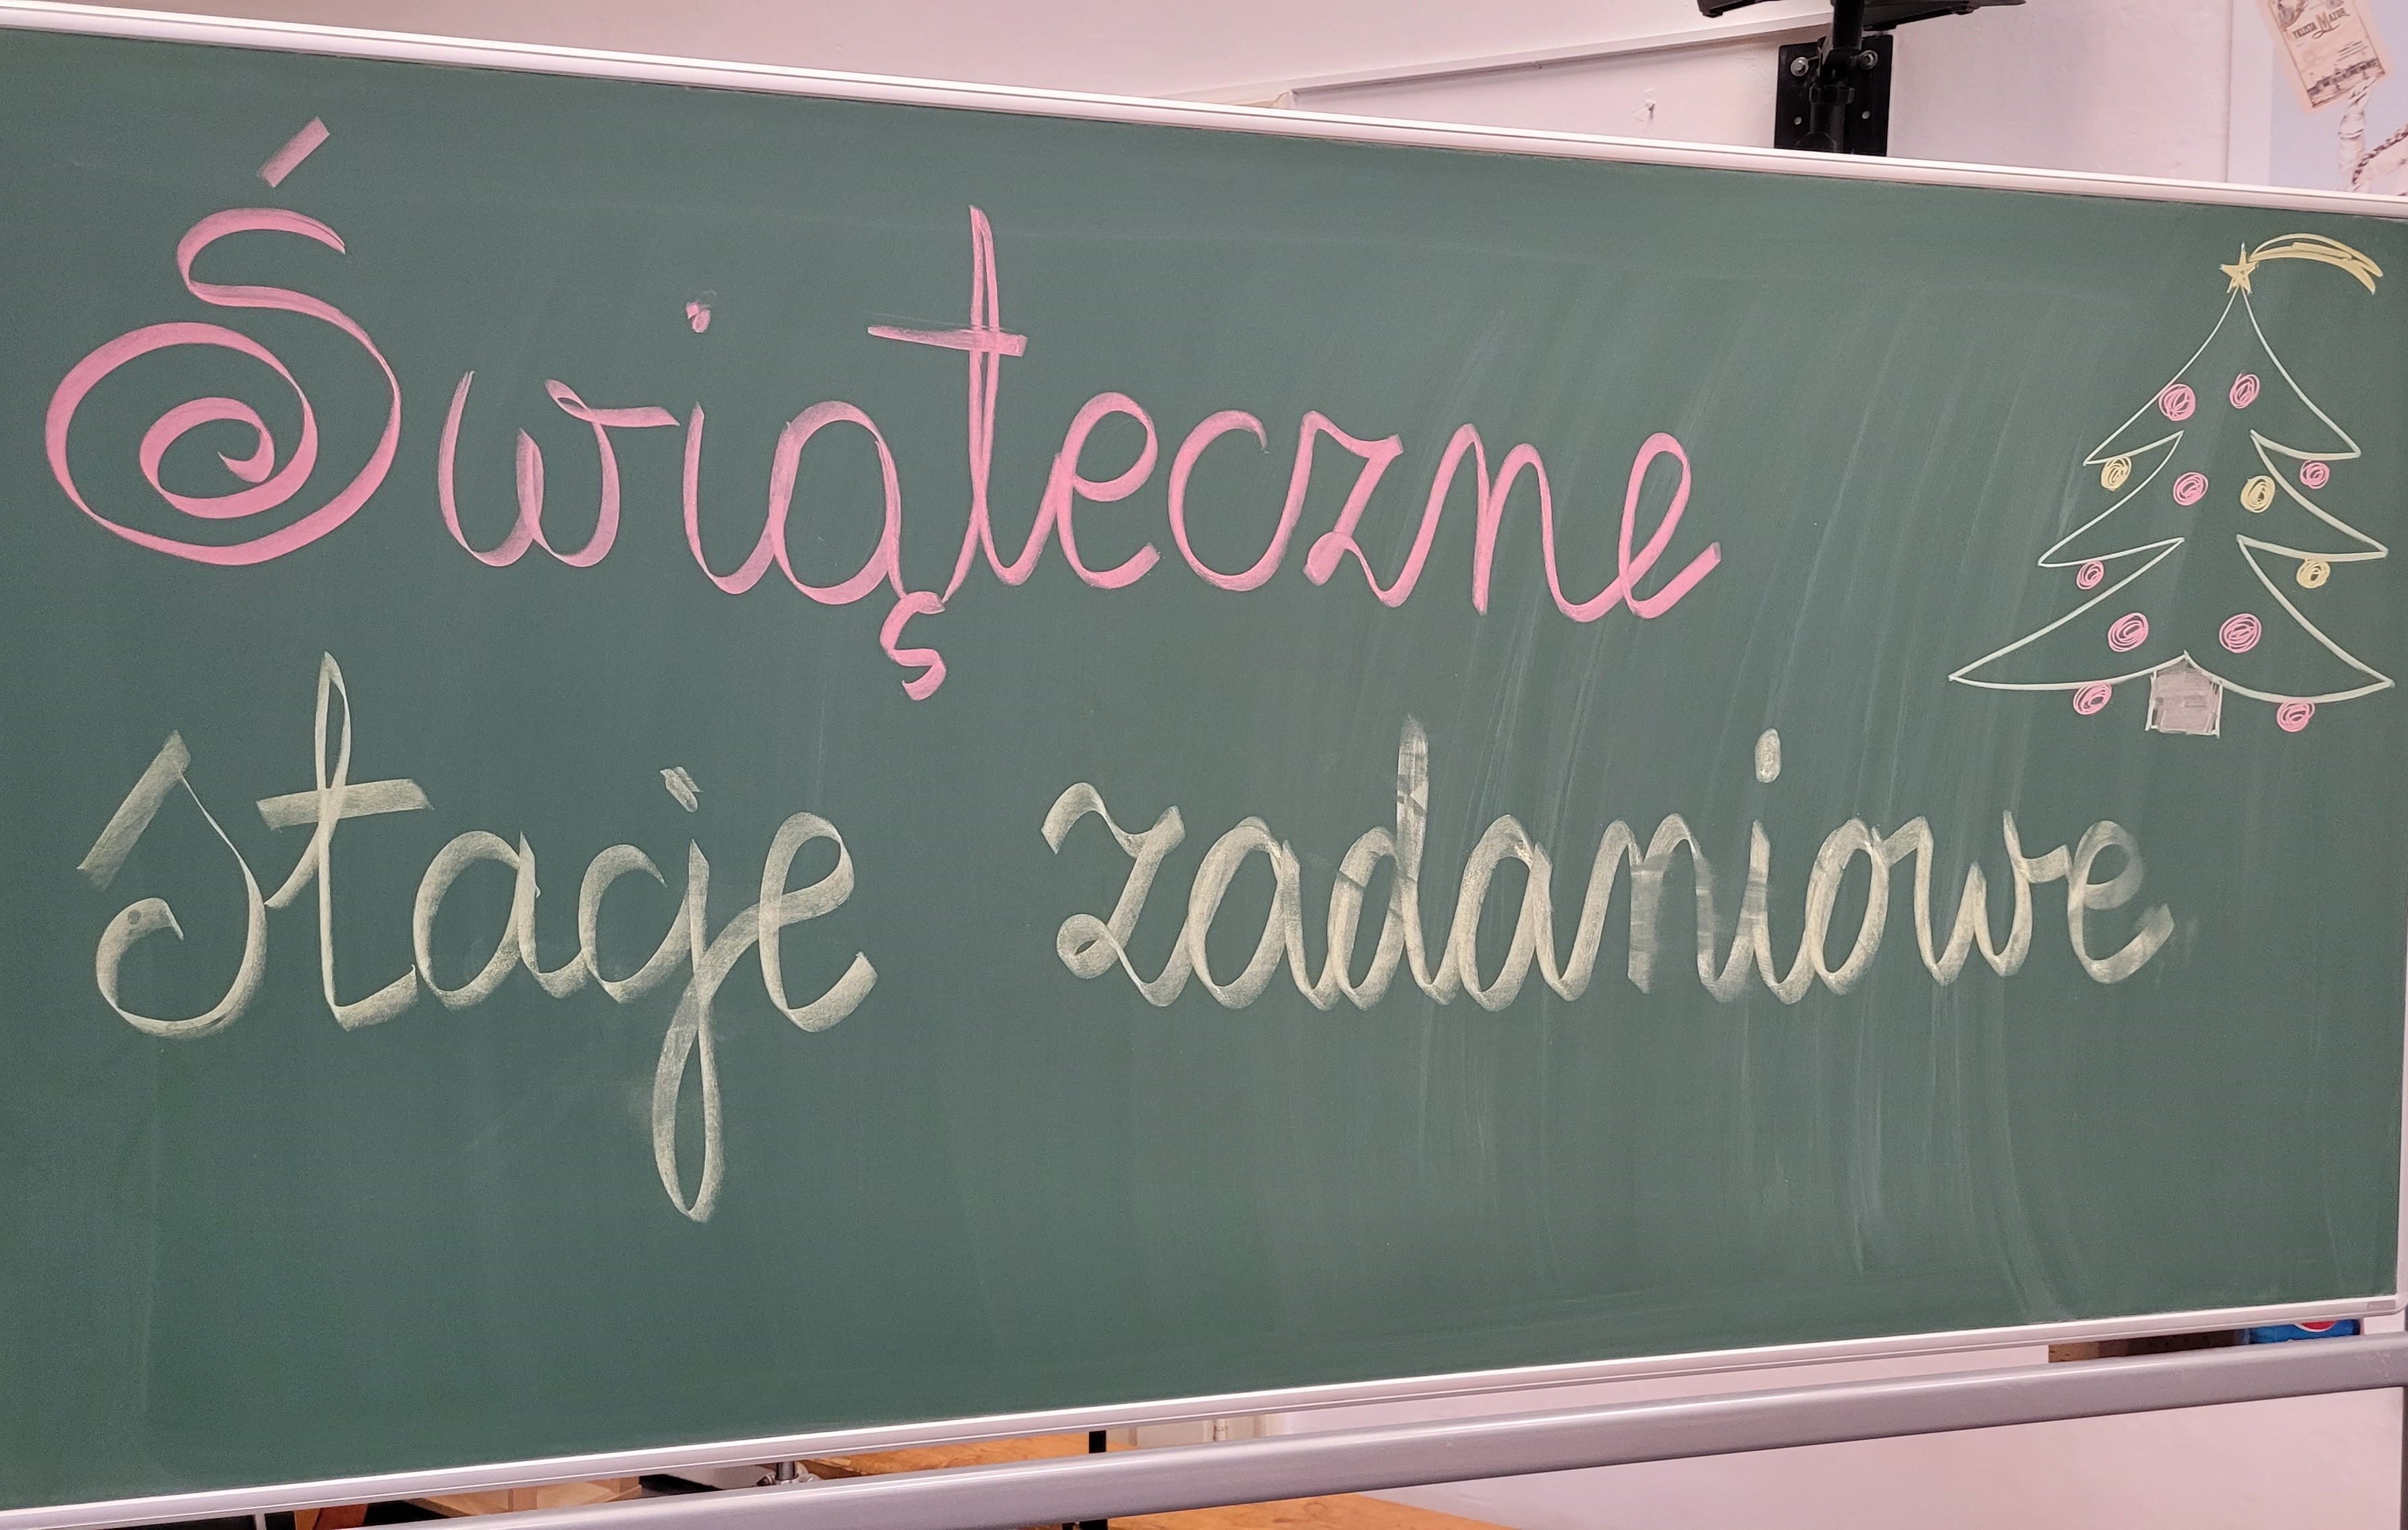 Świąteczne
stacje zadaniowe